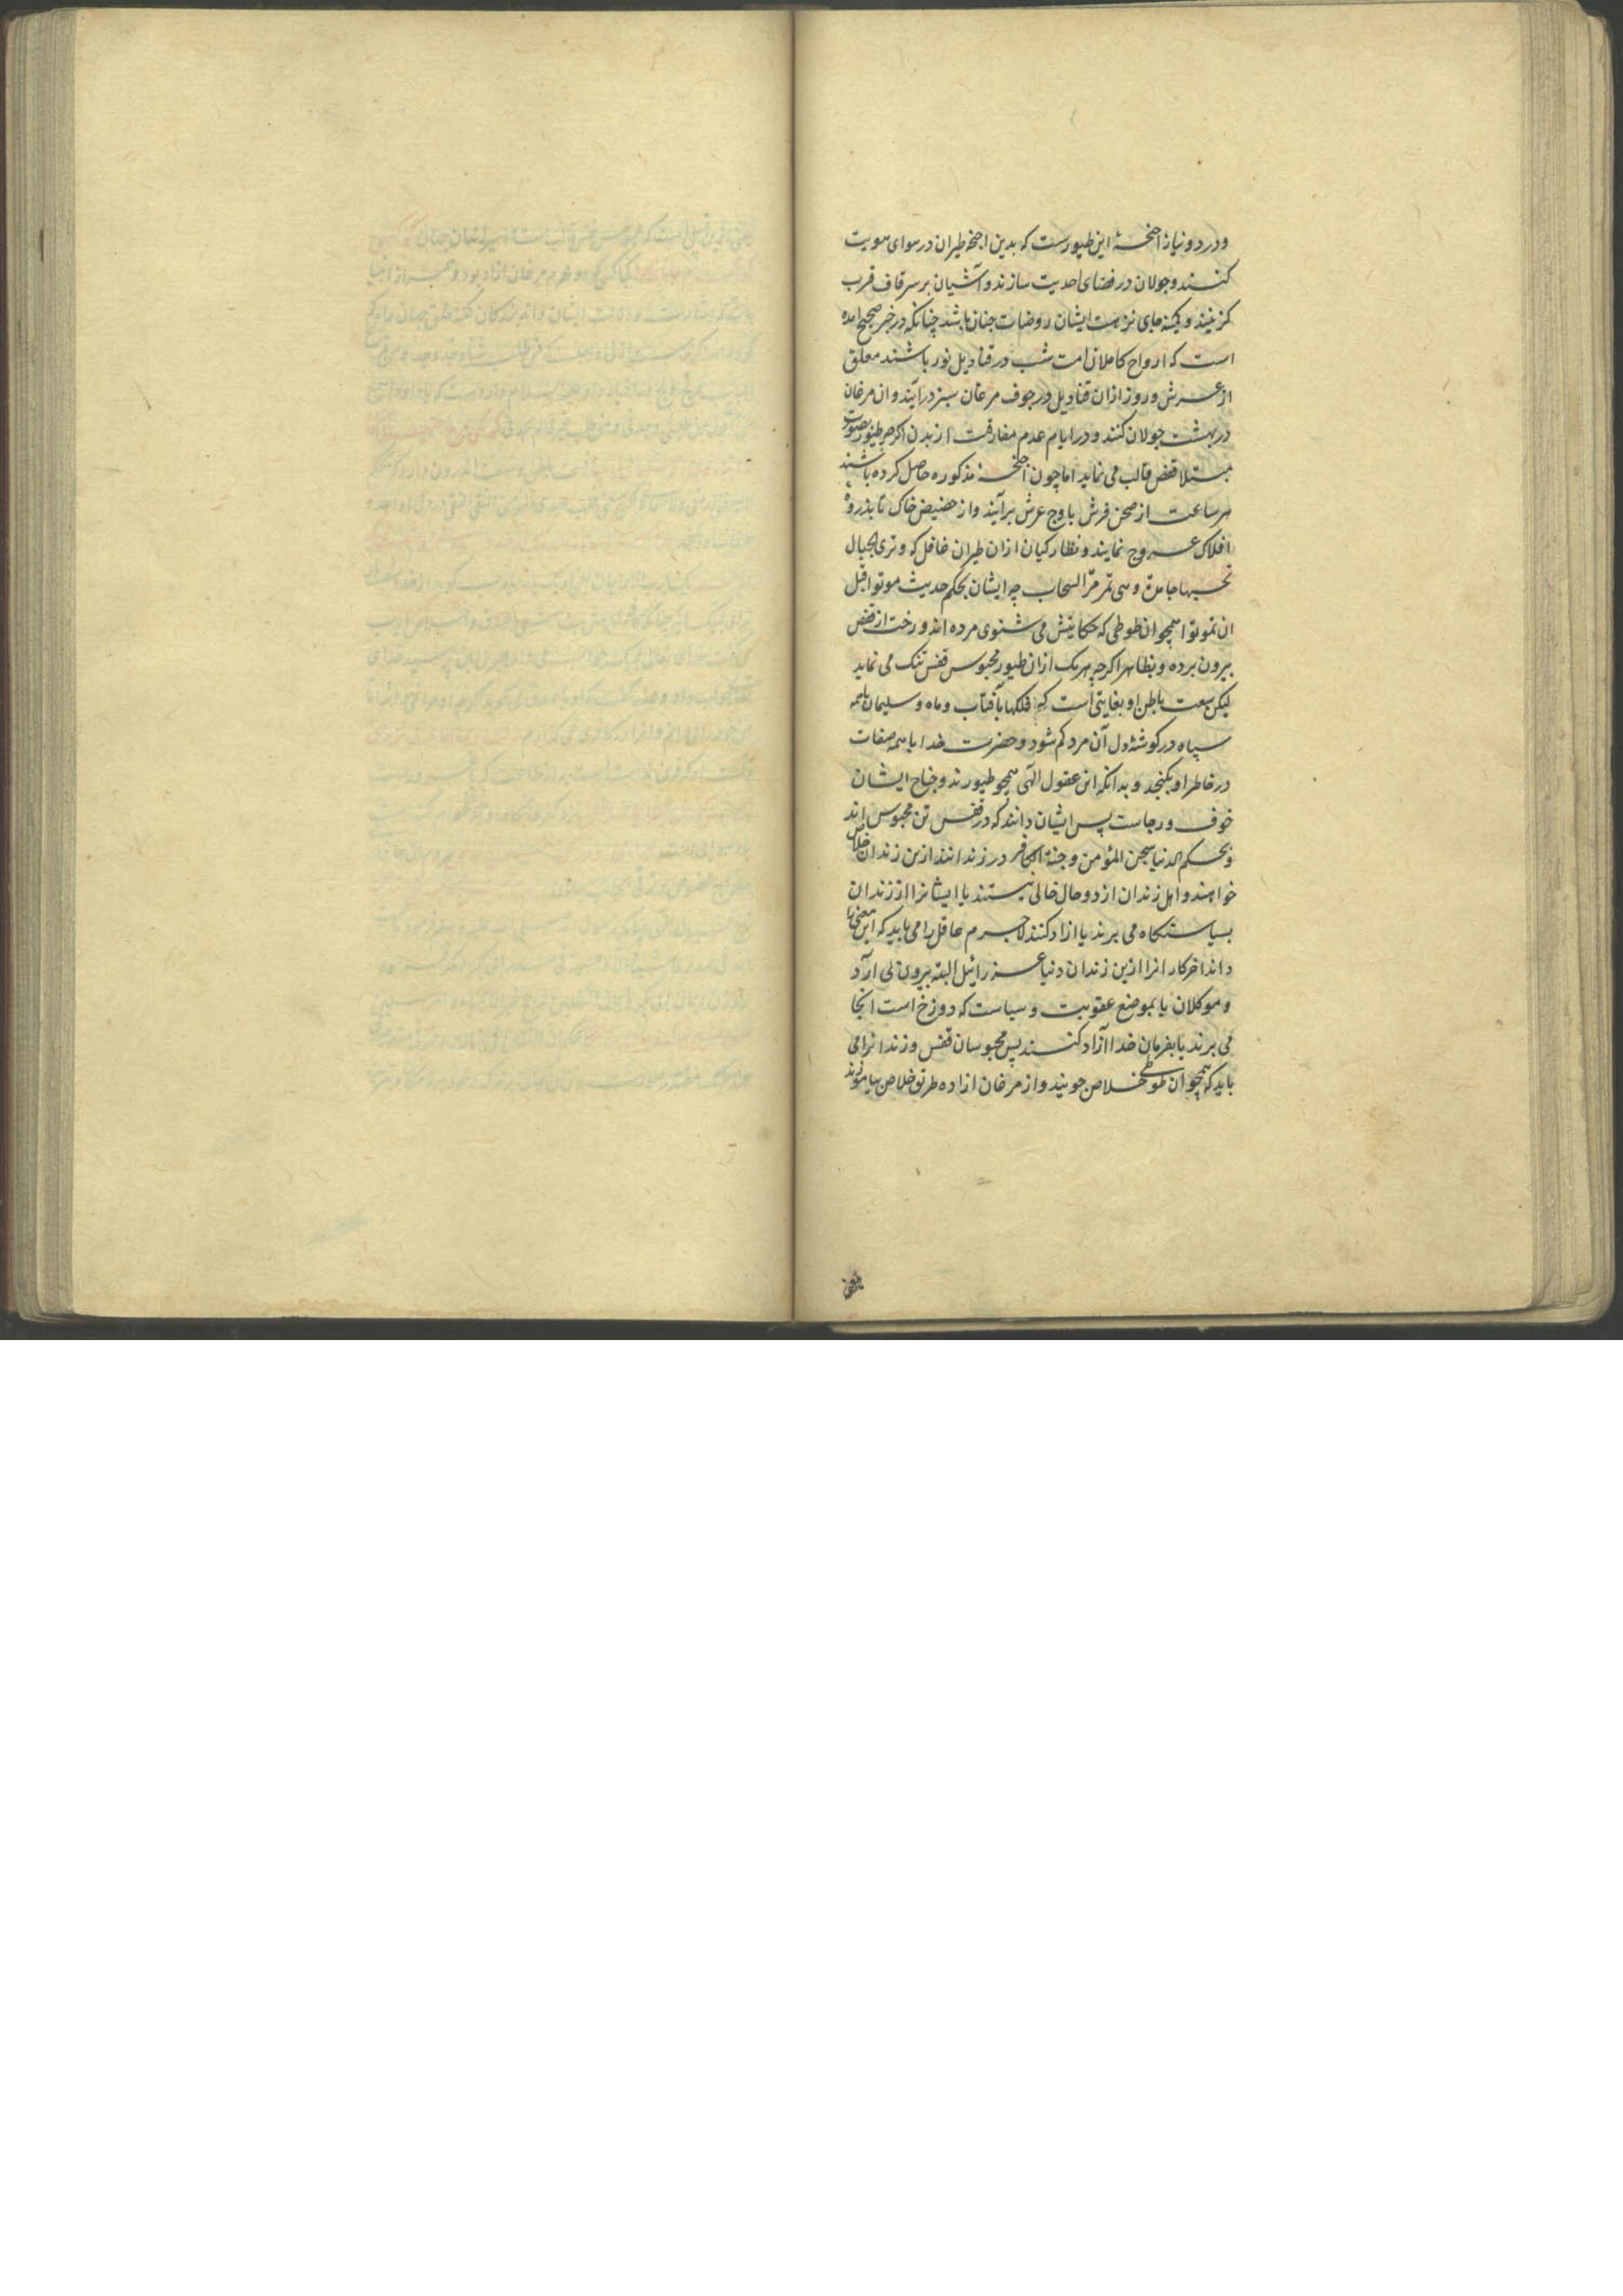 ودرد و نیاز اجنحهٔ این طیورست که بدین اجنحه طیران در هوای هویت
کنند و جولان در فضای احدیت سازند و آشیان بر سر قاف قرب
کزینند و کمینه جای نزهت ایشان روضات جنان باشد چنانکه در خبر صحیح امده
است که ارواح کاملان امت شب در قنادیل نور باشند معلق
از عرش و روز ازان قنادیل در جوف مرغان سبز درآیند و ان مرغان
در بهشت جولان کنند و در ایام عدم مفارقت از بدن اکرچه طیور بصورت
مبتلا قفص قالب می نماید اما چون اجنحهٔ مذکوره حاصل کرده باشند
هر ساعت از صحن فرش باوج عرش برآیند و از حضیض خاک تا بذروهٔ
افلاک عروج نمایند و نظارکیان ازان طیران غافل که وتری الجبال
تحسبها جامدة وهی تمر مرّ السحاب چه ایشان بحکم حدیث موتوا قبل
ان تموتوا همچو ان طوطی که حکایتش می شنوی مرده اند و رخت از قفص
بیرون برده و بظاهر اکرچه هریک ازان طیور محبوس قفس تنک می نماید
لیکن سعت باطن او بغایتی است که فلکها با آفتاب و ماه و سلیمان باهمه
سپاه در کوشهٔ دل آن مرد کم شود و حضرت خدا با همه صفات
در خاطر او بکنجد و بدانکه این عقول الهی همچو طیورند و جناح ایشان
خوف و رجاست پس ایشان دانند که در قفس تن محبوس اند
و بحکم الدنیا سجن المؤمن وجنة الکافر در زندانند ازین زندان خلاص
خواهند و اهل زندان از دو حال خالی نیستند یا ایشانرا از زندان
بسیاستکاه می برند یا ازاد کنند لاجرم عاقل را می باید که این معنی را
داند اخر کار انرا ازین زندان دنیا عزرائیل البته بیرون می آرد
و موکلان یا بموضع عقوبت و سیاست که دوزخ است انجا
می برند یا بفرمان خدا آزاد کنند پس محبوسان قفس و زندانرا می
باید که همچو ان طوطی خلاص جویند و از مرغان ازاده طریق خلاص بیاموزند